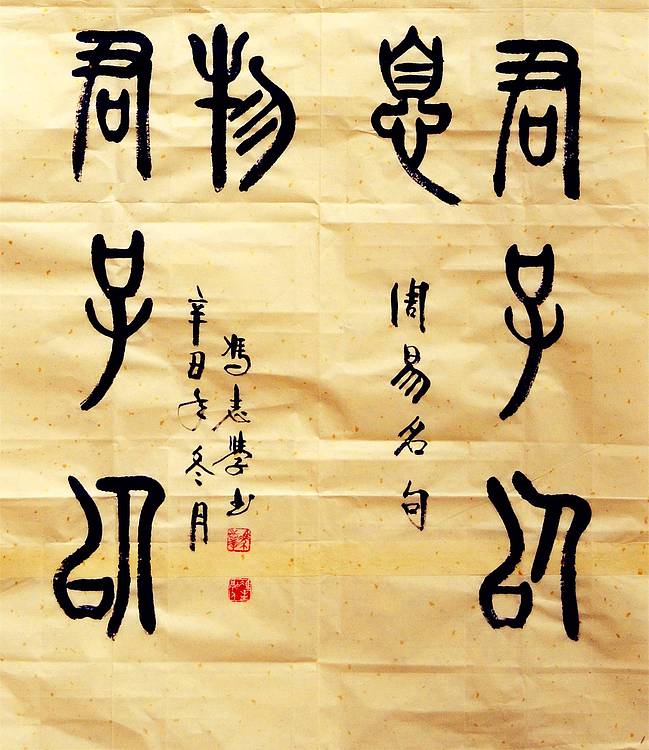 君子以
息
周易名句
君子以
物
辛丑年冬月
馮志學书